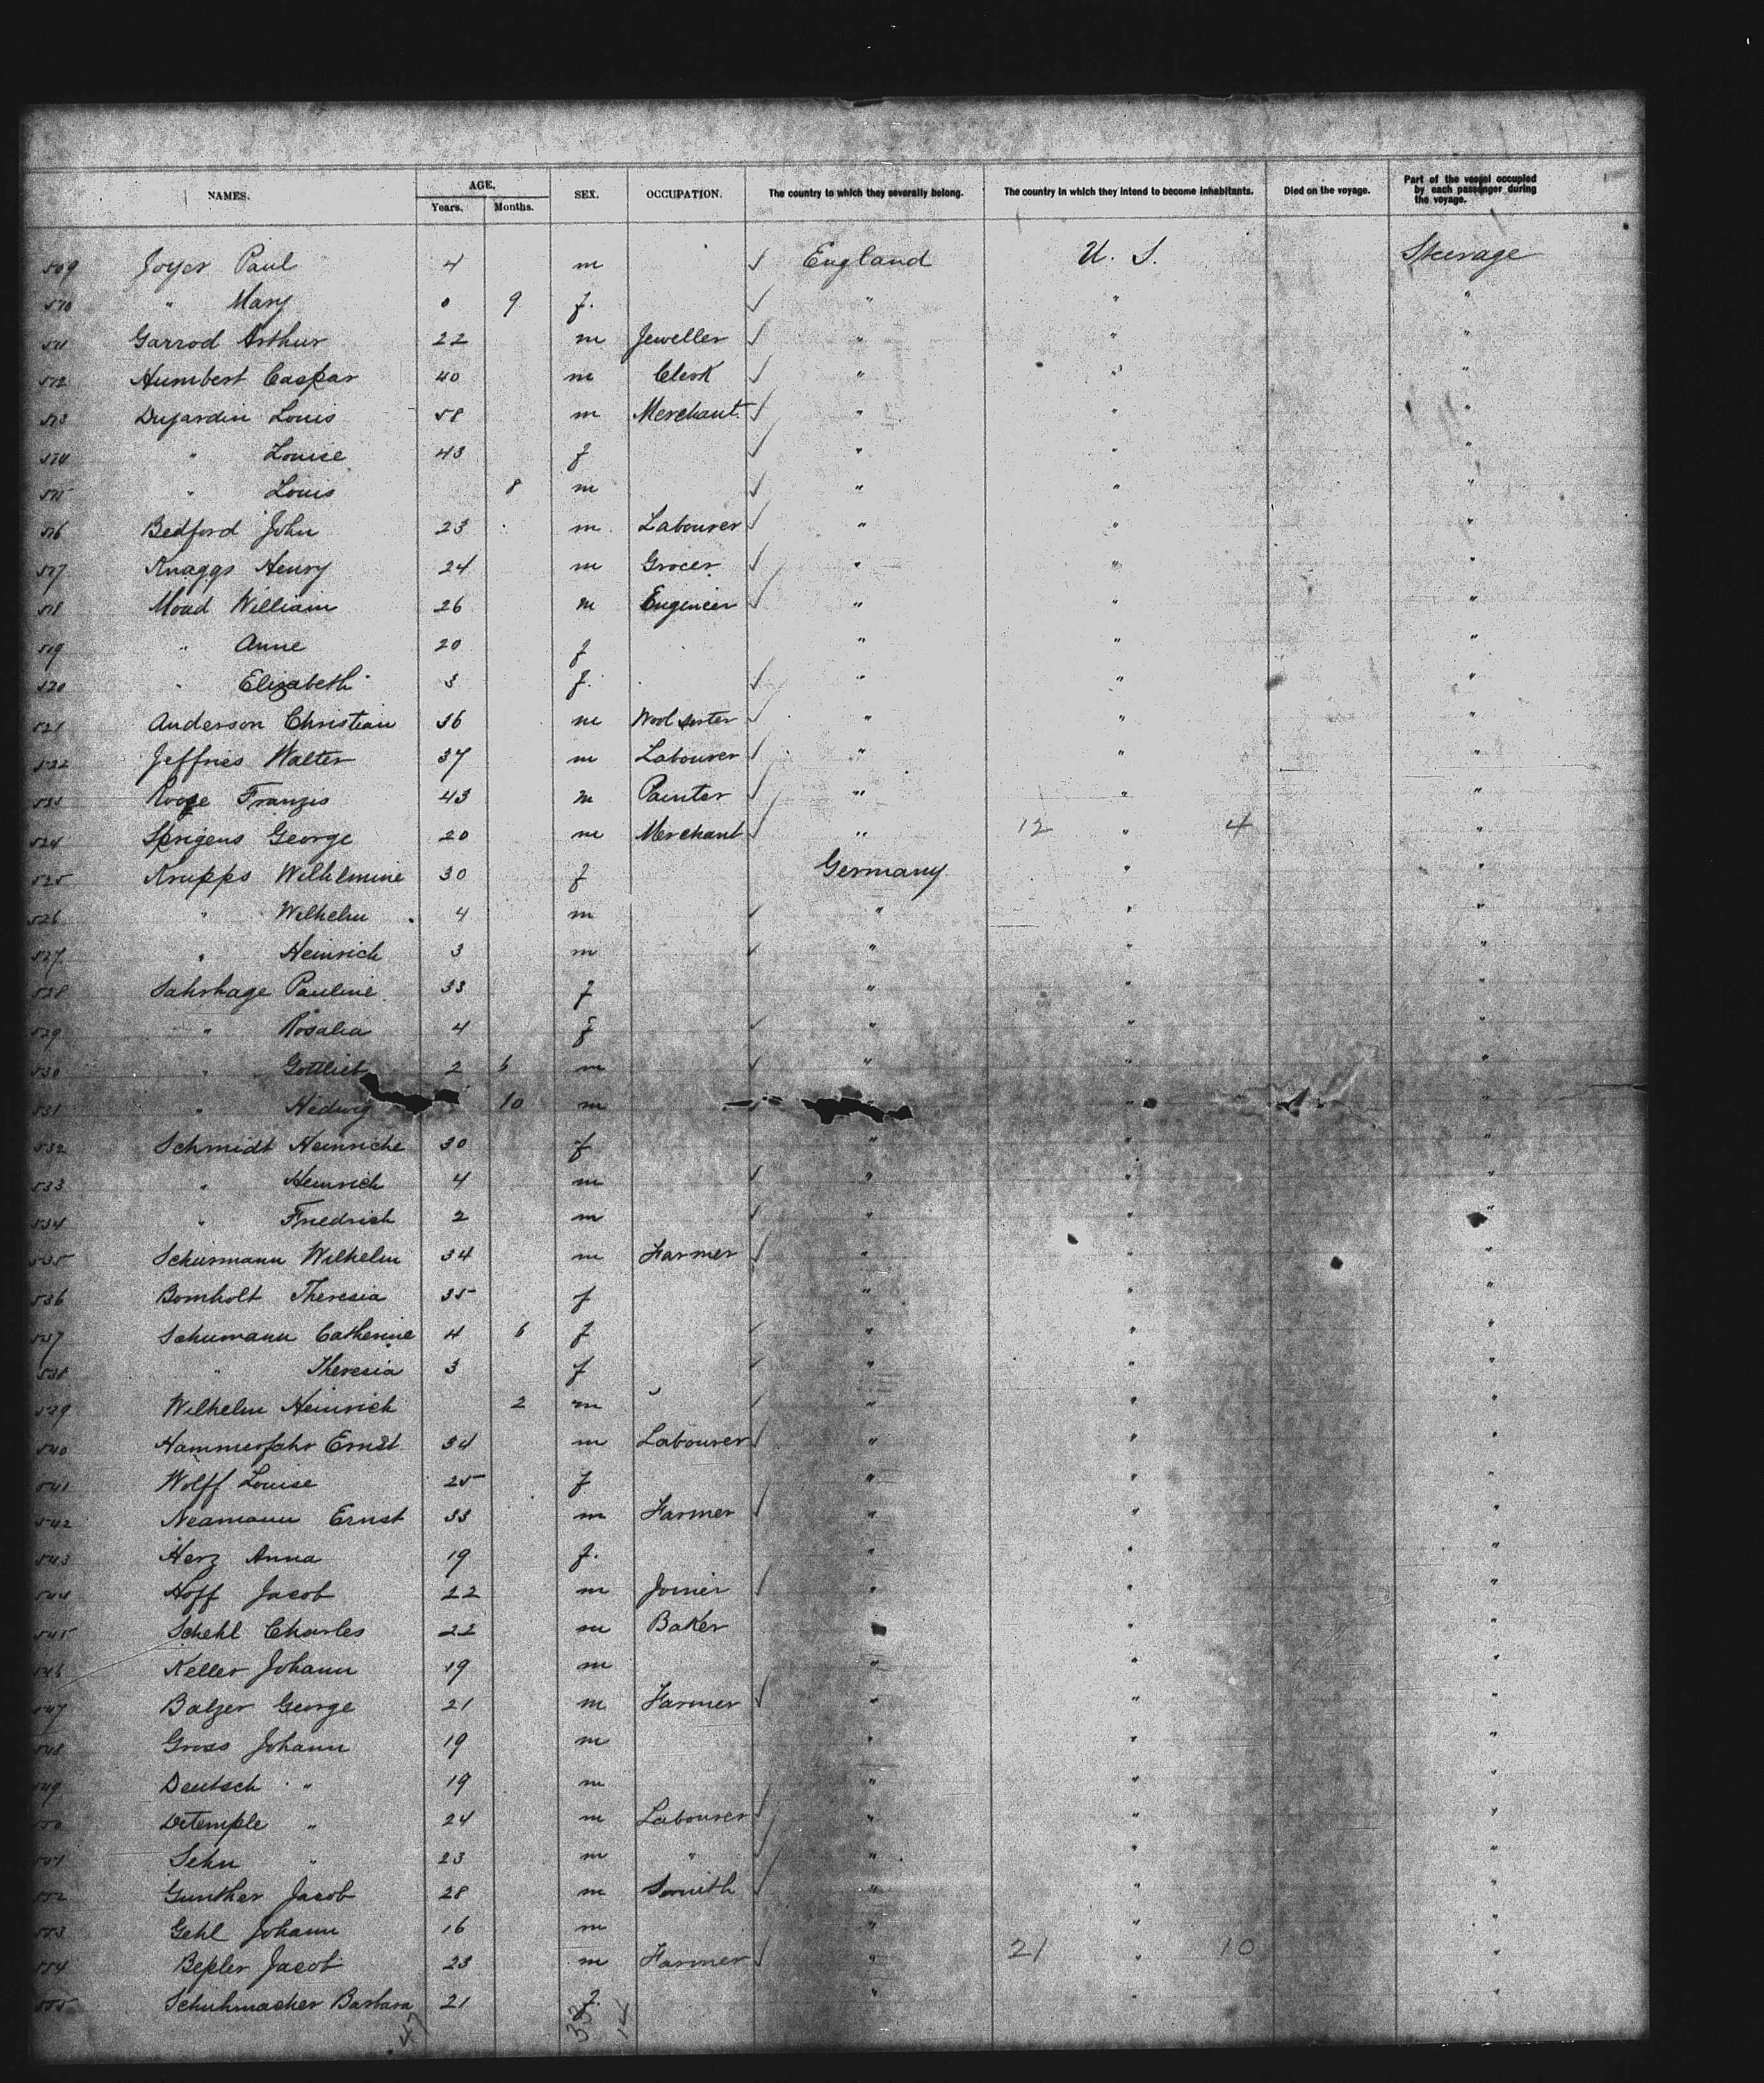 NAMES. AGE. SEX. OCCUPATION. The country to which they severally belong. The country in which they intend to become inhabitants. Died on the voyage. Part of the vessel occupied by each passenger during the voyage.
Years. Months.
509 Joyer Paul 4 m ✓ England U. S. Steerage
510 " Mary 0 9 f. ✓ " " "
511 Garrod Arthur 22 m Jeweller ✓ " " "
512 Humbert Caspar 40 m Clerk ✓ " " "
513 Dujardin Louis 58 m Merchant ✓ " " "
514 " Louise 43 f ✓ " " "
515 " Louis 8 m ✓ " " "
516 Bedford John 23 m Labourer ✓ " " "
517 Knaggs Henry 24 m Grocer ✓ " " "
518 Moad William 26 m Engineer ✓ " " "
519 " Anne 20 f " " "
520 " Elizabeth 3 f. ✓ " " "
521 Anderson Christian 36 m Wool sorter ✓ " " "
522 Jeffries Walter 37 m Labourer ✓ " " "
523 Franzis 43 m Painter ✓ " " "
524 Sprigens George 20 m Merchant ✓ " 12 " 4 "
525 Krupps Wilhelmine 30 f Germany " "
526 " Wilhelm 4 m ✓ " " "
527 " Heinrich 3 m ✓ " " "
528 Sahrhage Pauline 33 f " " "
529 " Rosalia 4 f ✓ " " "
530 " Gottlieb 2 6 m ✓ " " "
531 " Hedwig 10 m " "
532 Schmidt Heinriche 30 f " " "
533 " Heinrich 4 m ✓ " " "
534 " Friedrich 2 m ✓ " " "
535 Schürmann Wilhelm 34 m Farmer ✓ " " "
536 Bomholt Theresia 35 f " " "
537 Schumann Catherine 4 6 f ✓ " " "
538 " Theresia 3 f ✓ " " "
539 Wilhelm Heinrich 2 m ✓ " " "
540 Hammerfahr Ernst 34 m Labourer ✓ " " "
541 Wolff Louise 25 f " " "
542 Neamann Ernst 33 m Farmer ✓ " " "
543 Herz Anna 19 f. " " "
544 Hoff Jacob 22 m Joiner ✓ " " "
545 Schehl Charles 22 m Baker " "
546 Keller Johann 19 m " " "
547 Balzer George 21 m Farmer ✓ " " "
548 Gross Johann 19 m " " "
549 Deutsch " 19 m " " "
550 Detemple " 24 m Labourer ✓ " " "
551 Sehn " 23 m " ✓ " " "
552 Gunther Jacob 28 m Smith ✓ " " "
553 Gehl Johann 16 m " " "
554 Bepler Jacob 23 m Farmer ✓ " 21 " 10 "
555 Schuhmacher Barbara 21 f. " " "
47 33 14